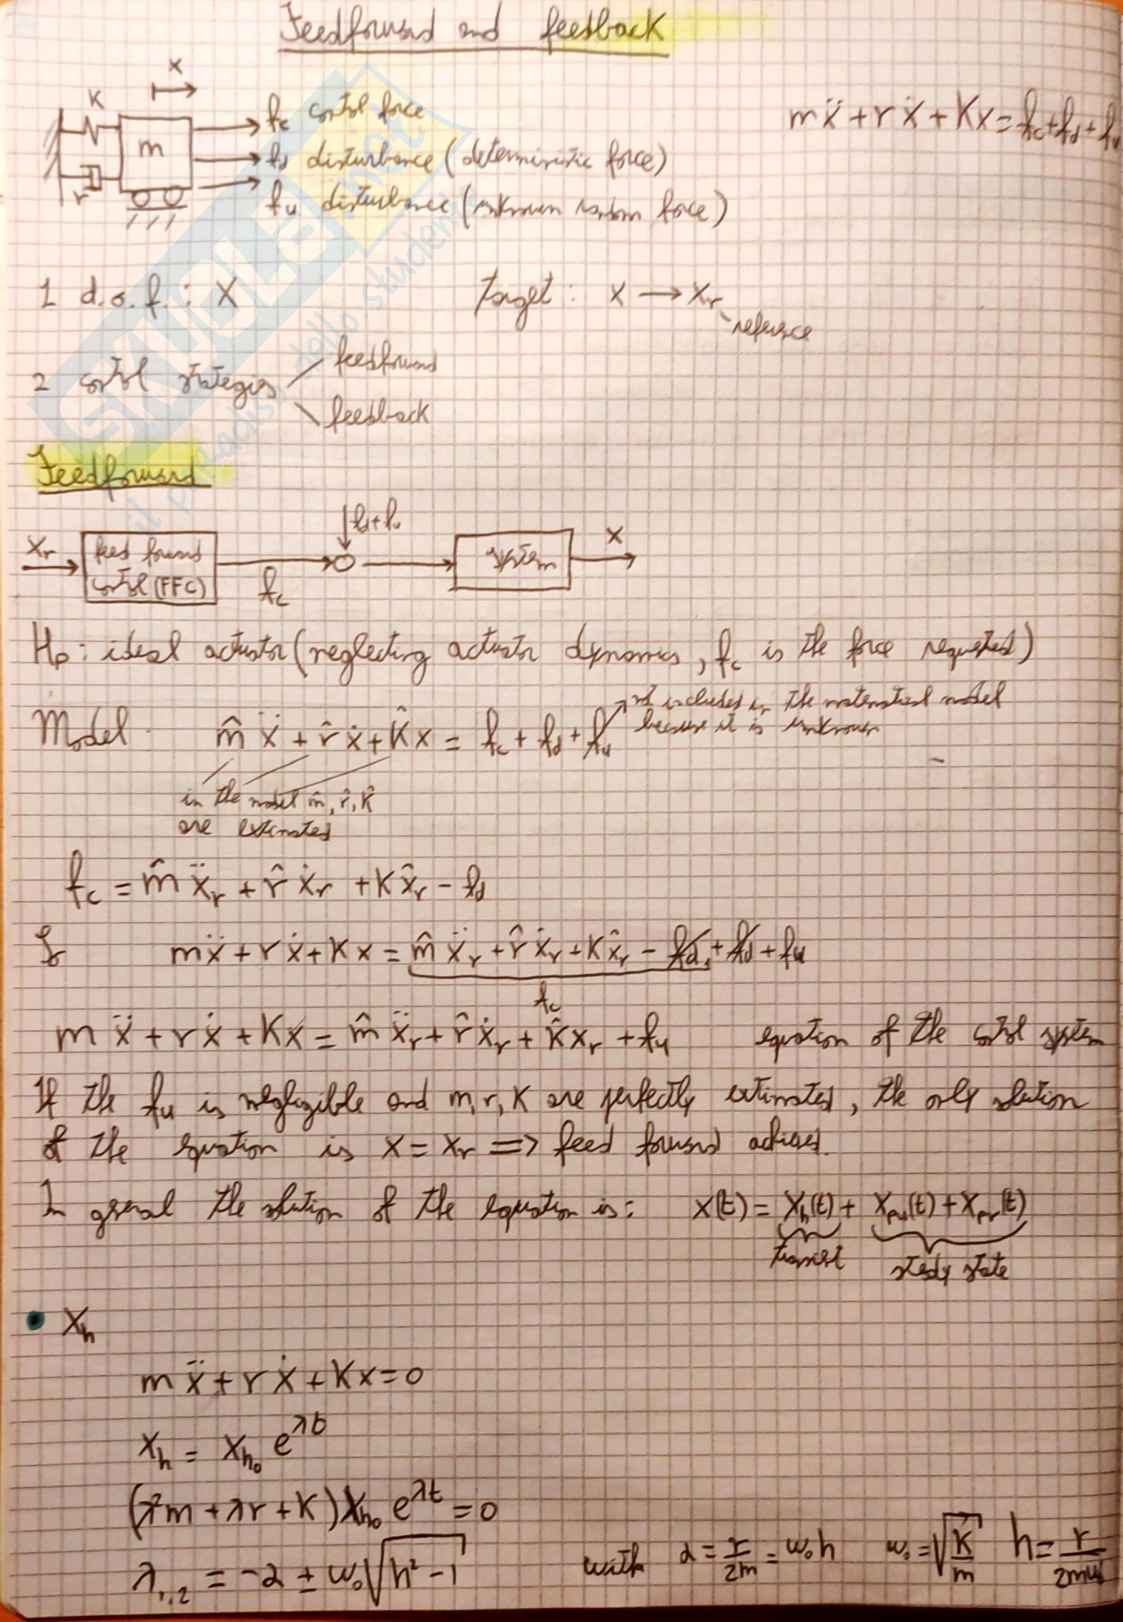 Feedforward and feedback
x
K
m
r
fc control force
fd disturbance (deterministic force)
fu disturbance (unknown random force)
mẍ + rẋ + Kx = fc + fd + fu
1 d.o.f.: X
Target: x → xr
reference
2 control strategies
feedforward
feedback
Feedforward
xr
feed forward
control (FFC)
fc
fd+fu
system
x
Hp: ideal actuator (neglecting actuator dynamics, fc is the force requested)
Model
m̂ẍ + r̂ẋ + K̂x = fc + fd + fu
not included in the matematical model
because it is unknown
in the model m̂, r̂, K̂
are extimated
fc = m̂ẍr + r̂ẋr + Kx̂r - fd
So mẍ + rẋ + Kx = m̂ẍr + r̂ẋr + Kx̂r - fd + fd + fu
fc
mẍ + rẋ + Kx = m̂ẍr + r̂ẋr + K̂xr + fu equation of the control system
If the fu is negligible and m, r, K are perfectly extimated, the only solution
of the equation is x = xr => feed forward achieved.
In general the solution of the equation is: x(t) = xh(t) + xpu(t) + xpr(t)
transient
steady state
• xh
mẍ + rẋ + Kx = 0
xh = xh0 e^λt
(λ²m + λr + K) xh0 e^λt = 0
λ1,2 = -α ± ω0√(h² - 1) with α = r/2m = ω0h ω0 = √(K/m) h = r/2mω0